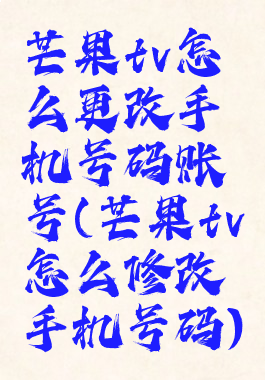 芒果tv怎
么更改手
机号码账
号(芒果tv
怎么修改
手机号码)